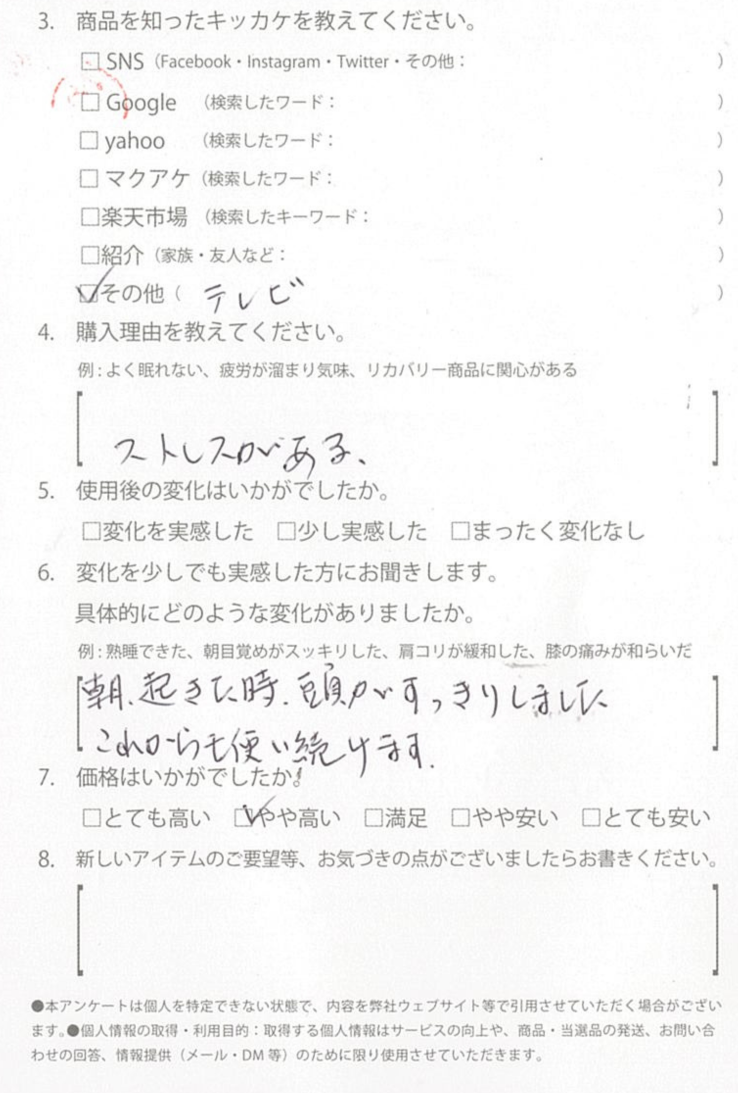 3. 商品を知ったキッカケを教えてください。
□ SNS（Facebook・Instagram・Twitter・その他： ）
□ Google （検索したワード： ）
□ yahoo （検索したワード： ）
□ マクアケ（検索したワード： ）
□楽天市場 （検索したキーワード： ）
□紹介（家族・友人など： ）
☑その他（ テレビ ）
4. 購入理由を教えてください。
例：よく眠れない、疲労が溜まり気味、リカバリー商品に関心がある
ストレスがある、
5. 使用後の変化はいかがでしたか。
□変化を実感した □少し実感した □まったく変化なし
6. 変化を少しでも実感した方にお聞きします。
具体的にどのような変化がありましたか。
例：熟睡できた、朝目覚めがスッキリした、肩コリが緩和した、膝の痛みが和らいだ
朝、起きた時、頭がすっきりしました
これからも使い続けます.
7. 価格はいかがでしたか。
□とても高い ☑やや高い □満足 □やや安い □とても安い
8. 新しいアイテムのご要望等、お気づきの点がございましたらお書きください。
●本アンケートは個人を特定できない状態で、内容を弊社ウェブサイト等で引用させていただく場合がござい
ます。●個人情報の取得・利用目的：取得する個人情報はサービスの向上や、商品・当選品の発送、お問い合
わせの回答、情報提供（メール・DM 等）のために限り使用させていただきます。